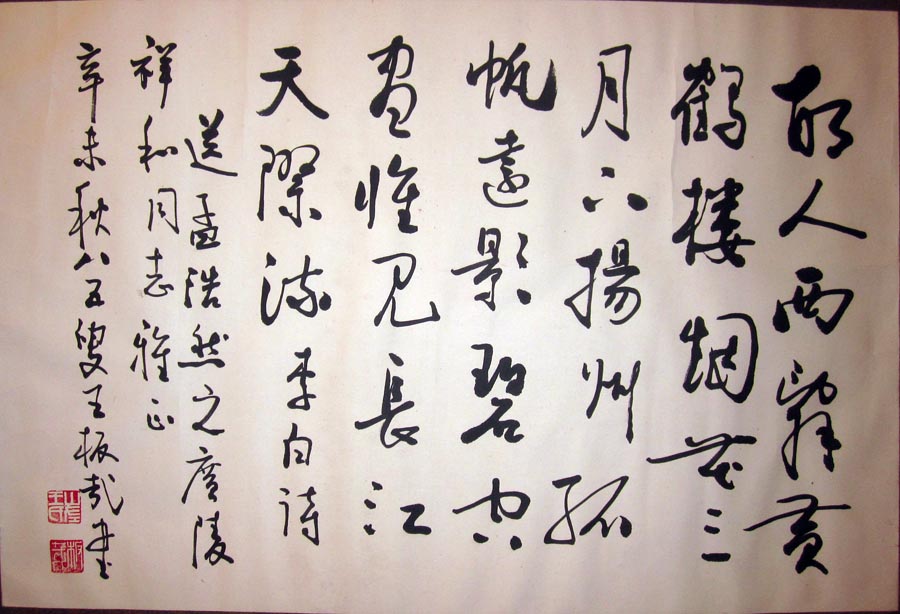 故人西辭黃
鶴樓烟花三
月下揚州孤
帆遠影碧空
盡惟見長江
天際流李白詩
送孟浩然之廣陵
祥和同志雅正
辛未秋八五叟王板哉書